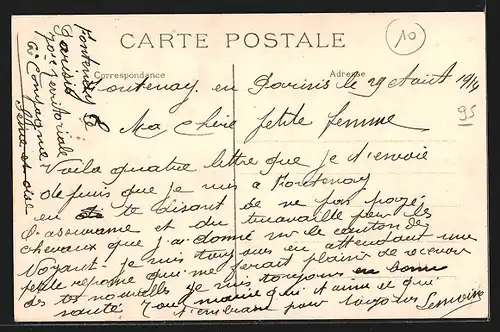 CARTE POSTALE
10
Correspondance
Adresse
Fontenay en Parisis le 29 Aout 1914
95
Ma chère petite femme
Voila quatre lettre que je t'envoie
depuis que je suis a Fontenay
en te disant de ne pas payé
l'assurance et du travaille pour les
chevaux que j'ai donné sur le canton de
Noyant je suis toujours en attendant une
petite reponse qui me ferait plaisir de recevoir
des tes nouvelles je suis toujours en bonne
santé Ton marie qui t'aime et qui
t'embrasse pour toujours
Fontenay en
Parisis
territoriale
Compagnie
Seine et oise